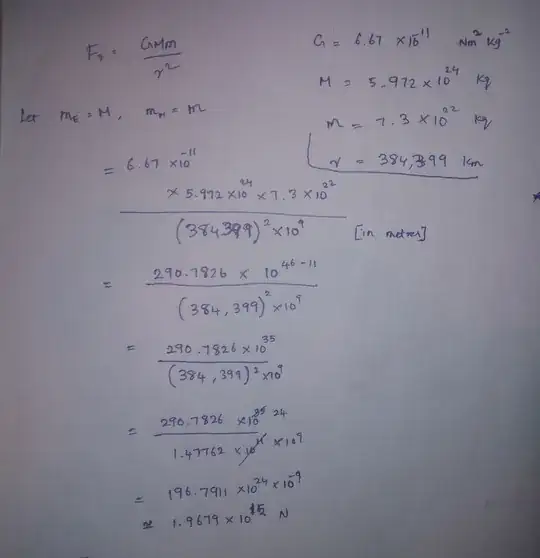 F₉ = GMm / r²
G = 6.67 × 10⁻¹¹ Nm² Kg⁻²
M = 5.972 × 10²⁴ Kg
Let mE = M, mM = m
m = 7.3 × 10²² Kg
r = 384,399 Km
= 6.67 × 10⁻¹¹
× 5.972 × 10²⁴ × 7.3 × 10²²
(384399)² × 10⁹ [in metres]
= 290.7826 × 10⁴⁶⁻¹¹
(384,399)² × 10⁹
= 290.7826 × 10³⁵
(384,399)² × 10⁹
= 290.7826 × 10³⁵ 24
1.47762 × 10¹¹ × 10⁹
= 196.7911 × 10²⁴ × 10⁻⁹
≃ 1.9679 × 10¹⁵ N